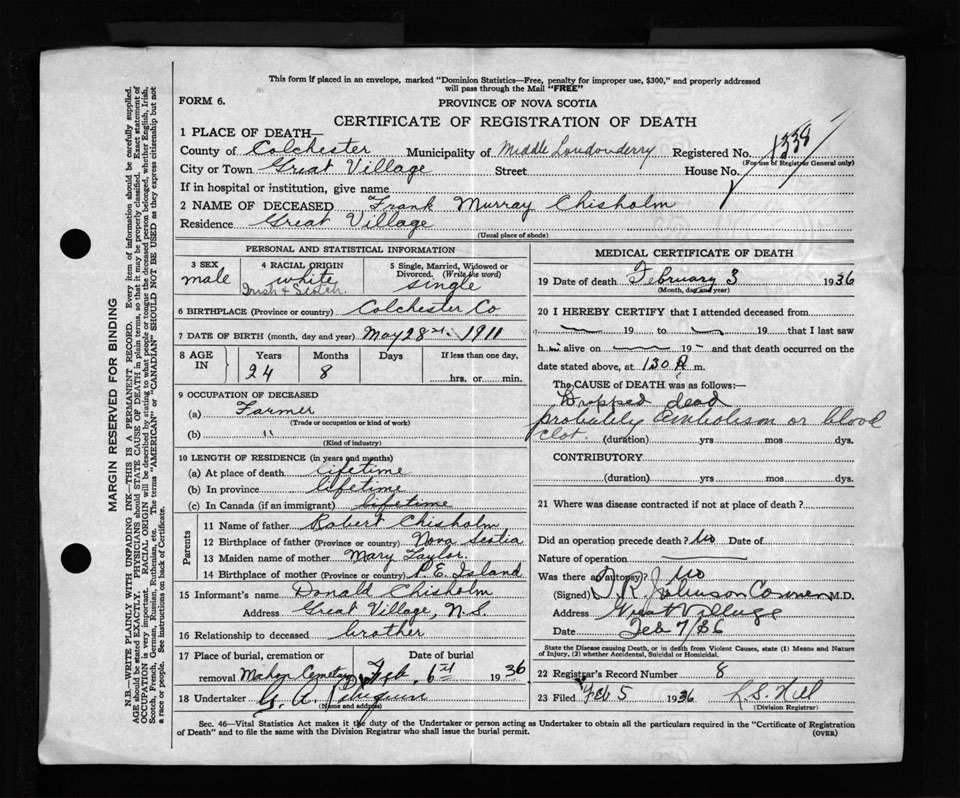 This form if placed in an envelope, marked "Dominion Statistics—Free, penalty for improper use, $300," and properly addressed
will pass through the Mail "FREE"
FORM 6.
PROVINCE OF NOVA SCOTIA
CERTIFICATE OF REGISTRATION OF DEATH
1 PLACE OF DEATH—
County of Colchester Municipality of Middle Londonderry Registered No. 1338
(For use of Registrar General only)
City or Town Great Village Street House No.
If in hospital or institution, give name
2 NAME OF DECEASED Frank Murray Chisholm
Residence Great Village
(Usual place of abode)
PERSONAL AND STATISTICAL INFORMATION
3 SEX male
4 RACIAL ORIGIN white
Irish & Scotch.
5 Single, Married, Widowed or
Divorced. (Write the word)
single
6 BIRTHPLACE (Province or country) Colchester Co
7 DATE OF BIRTH (month, day and year) May 28 1911
8 AGE IN Years Months Days If less than one day,
24 8 hrs. or min.
9 OCCUPATION OF DECEASED
(a) Farmer
(Trade or occupation or kind of work)
(b) "
(Kind of industry)
10 LENGTH OF RESIDENCE (in years and months)
(a) At place of death lifetime
(b) In province lifetime
(c) In Canada (if an immigrant) lifetime
Parents
11 Name of father Robert Chisholm
12 Birthplace of father (Province or country) Nova Scotia
13 Maiden name of mother Mary Taylor.
14 Birthplace of mother (Province or country) P.E. Island
15 Informant's name Donald Chisholm
Address Great Village, N.S.
16 Relationship to deceased brother
17 Place of burial, cremation or Date of burial
removal Mahon Cemetery Feb. 6th 1936
18 Undertaker G. A.
(Name and address)
MEDICAL CERTIFICATE OF DEATH
19 Date of death February 3 1936
(Month, day and year)
20 I HEREBY CERTIFY that I attended deceased from
19 to 19 that I last saw
h alive on 19 and that death occurred on the
date stated above, at 130 m.
The CAUSE OF DEATH was as follows:—
Dropped dead
probably embolism or blood
clot.
(duration) yrs mos dys.
CONTRIBUTORY
(duration) yrs mos dys.
21 Where was disease contracted if not at place of death?
Did an operation precede death? No Date of
Nature of operation
Was there an autopsy? No
(Signed) D. R. Johnson Coroner M.D.
Address Great Village
Date Feb 7/36
State the Disease causing Death, or in death from Violent Causes, state (1) Means and Nature
of Injury, (2) whether Accidental, Suicidal or Homicidal.
22 Registrar's Record Number 8
23 Filed Feb 5 1936 L S. Hill
(Division Registrar)
Sec. 46—Vital Statistics Act makes it the duty of the Undertaker or person acting as Undertaker to obtain all the particulars required in the "Certificate of Registration
of Death" and to file the same with the Division Registrar who shall issue the burial permit.
(OVER)
MARGIN RESERVED FOR BINDING
N.B.—WRITE PLAINLY WITH UNFADING INK—THIS IS A PERMANENT RECORD. Every item of information should be carefully supplied.
AGE should be stated EXACTLY. PHYSICIANS should STATE CAUSE OF DEATH in plain terms, so that it may be properly classified. Exact statement of
OCCUPATION is very important. RACIAL ORIGIN will be described by stating to what people or tongue the deceased person belonged, whether English, Irish,
Scotch, French, German, Russian, Ruthenian, etc. The terms "AMERICAN" or "CANADIAN" SHOULD NOT BE USED as they express citizenship but not
a race or people. See instructions on back of Certificate.